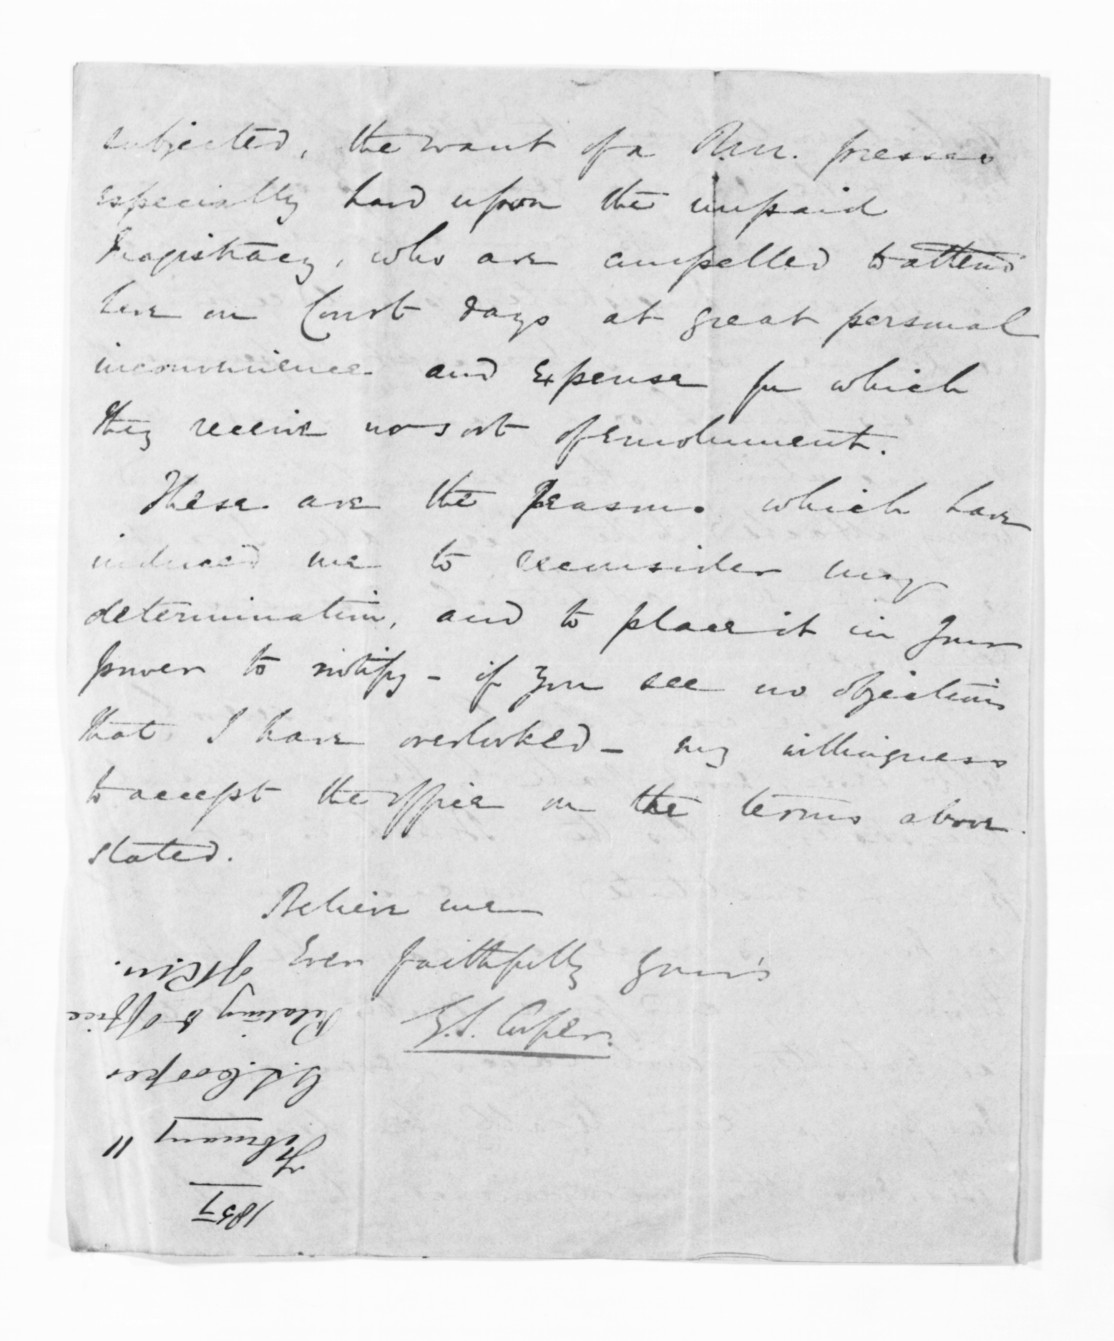 subjected, the want of a R.M. presses
especially hard upon the unpaid
Magistracy, who are compelled to attend
here on Court days at great personal
inconvenience and expense for which
they receive no sort of emolument.
These are the reasons which have
induced me to reconsider my
determination, and to place it in your
power to notify - if you see no objections
that I have overlooked - my willingness
to accept the office on the terms above
stated.
Believe me
Ever faithfully yours
G. S. Cooper.
1857
February 11
G. S. Cooper
Relating to Office
of R.M.